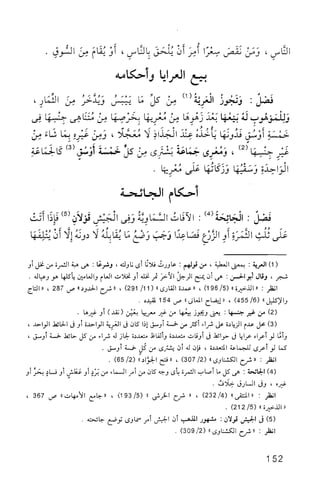 النَّاسِ ، وَمَنْ نَقَصَ سِعْرًا أُمِرَ أَنْ يُلْحَقَ بِالنَّاسِ ، أَوْ يُقَامَ مِنَ السُّوقِ .
بيع العرايا وأحكامه
فَصْلٌ : وَتَجُوزُ الْعَرِيَّةُ (١) مِنْ كلِّ مَا يَيْبَسُ وَيُدَّخَرُ مِنَ الثِّمَارِ ،
وَلِلْمَوْهُوبِ لَهُ بَيْعُهَا بَعْدَ زَهْوِهَا مِنْ مُعْرِيهَا بِخَرْصِهَا مِنْ مُتَنَاهِى جِنْسِهَا فِى
خَمْسَةِ أَوْسُقٍ فَدُونَهَا يَأْخُذُهُ عِنْدَ الْجَذَاذِ لَا مُعَجَّلًا ، وَمِنْ غَيْرِهِ بِمَا شَاءَ مِنْ
غَيْرِ جِنْسِهَا (٢) ، وَمُعْرِى جَمَاعَةً يَشْتَرِى مِنْ كلٍّ خَمْسَةَ أَوْسُقٍ (٣) كَالْجَمَاعَةِ
الْوَاحِدَةِ وَسَقْيُهَا وَزَكَاتُهَا عَلَى مُعْرِيهَا .
أحكام الجائحة
فَصْلٌ : الْجَائِحَةُ (٤) : الآفَاتُ السَّمَاوِيَّةُ وَفِى الْجَيْشِ قَوْلَانِ (٥) فَإِذَا أَتَتْ
عَلَى ثُلُثِ الثَّمَرَةِ أَوِ الزَّرْعِ فَصَاعِدًا وَجَبَ وَضْعُ مَا يُقَابِلُهُ لَا دونَهُ إِلَّا أَنْ يُتْلِفَهَا
(١) العرية : بمعنى العطية ، من قولهم : عاورتُ فلانًا أى ناولته ، وشرعًا : هى هبة الثمرة من نخل أو
شجر ، وقال أبو الحسن : هى أن يمنح الرجلُ الآخرَ ثمر نخله أو نخلات العام والعامين يأكلها هو وعياله .
انظر : « الذخيرة » (١٩٦/٥) ، « عمدة القارى » (٢٩١/١١) ، « شرح الحدود » ص ٢٨٧ ، « التاج
والإكليل » (٤٥٥/٦) ، « إيضاح المعانى » ص ١٥٤ لمقيده .
(٢) من غير جنسها : يعنى ويجوز بيعُها من غير معريها بعَيْنٍ (نقد) أو غيرها .
(٣) محل عدم الزيادة على شراء أكثر من خمسة أوسق إذا كان فى العَريّة الواحدة أو فى الحائط الواحد ،
وأمَّا لو أعراه عرايا فى حوائط فى أوقات متعددة وألفاظ متعددة جاز له شراء من كل حائط خمسة أوسق ،
كما لو أعرى للجماعة المتعددة ، فإن له أن يشترى من كُلٍ خمسة أوسق .
انظر : « شرح الكشناوى » (٣٠٧/٢) ، « فتح الجوَّاد » (٦٥/٢) .
(٤) الجائحة : هى كل ما أصاب الثمرة بأى وجه كان من أمر السماء من بَرْدٍ أو عَفَشٍ أو فسادٍ بحَرٍّ أو
غيره ، وفى السارق خِلافٌ .
انظر : « المنتقى » (٢٣٢/٤) ، « شرح الخرشى » (١٩٣/٥) ، « جامع الأمهات » ص ٣٦٧ ،
« الذخيرة » (٢١٢/٥) .
(٥) فى الجيش قولان : مشهور المذهب أن الجيش أمر سماوى توضع جائحته .
انظر : « شرح الكشناوى » (٣٠٩/٢) .
152